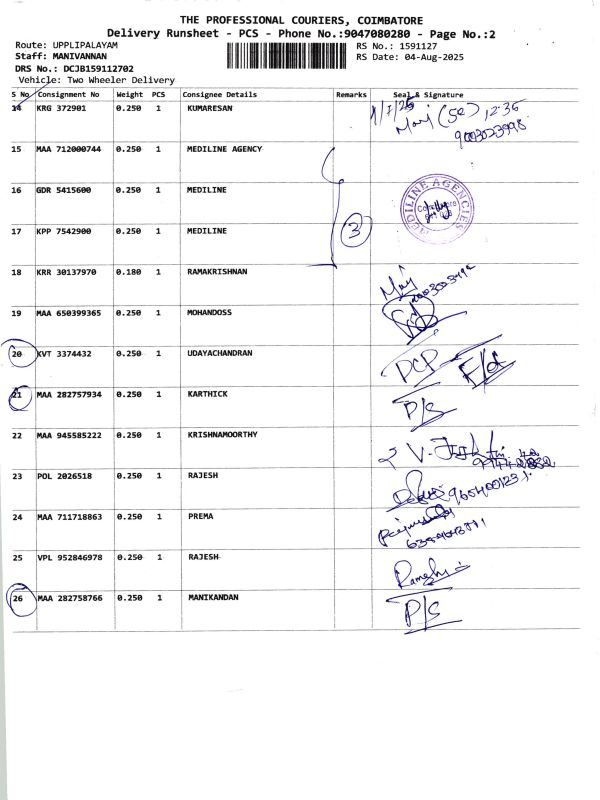 THE PROFESSIONAL COURIERS, COIMBATORE
Delivery Runsheet - PCS - Phone No.:9047080280 - Page No.:2
Route: UPPLIPALAYAM
RS No.: 1591127
Staff: MANIVANNAN
RS Date: 04-Aug-2025
DRS No.: DCJB159112702
Vehicle: Two Wheeler Delivery
S No Consignment No Weight PCS Consignee Details Remarks Seal & Signature
14 KRG 372901 0.250 1 KUMARESAN
12:36
15 MAA 712000744 0.250 1 MEDILINE AGENCY
16 GDR 5415600 0.250 1 MEDILINE
MEDILINE AGENCIES
17 KPP 7542900 0.250 1 MEDILINE
3
18 KRR 30137970 0.180 1 RAMAKRISHNAN
19 MAA 650399365 0.250 1 MOHANDOSS
20 KVT 3374432 0.250 1 UDAYACHANDRAN
DCP F/d
21 MAA 282757934 0.250 1 KARTHICK
P/S
22 MAA 945585222 0.250 1 KRISHNAMOORTHY
23 POL 2026518 0.250 1 RAJESH
24 MAA 711718863 0.250 1 PREMA
25 VPL 952846978 0.250 1 RAJESH
26 MAA 282758766 0.250 1 MANIKANDAN
P/S